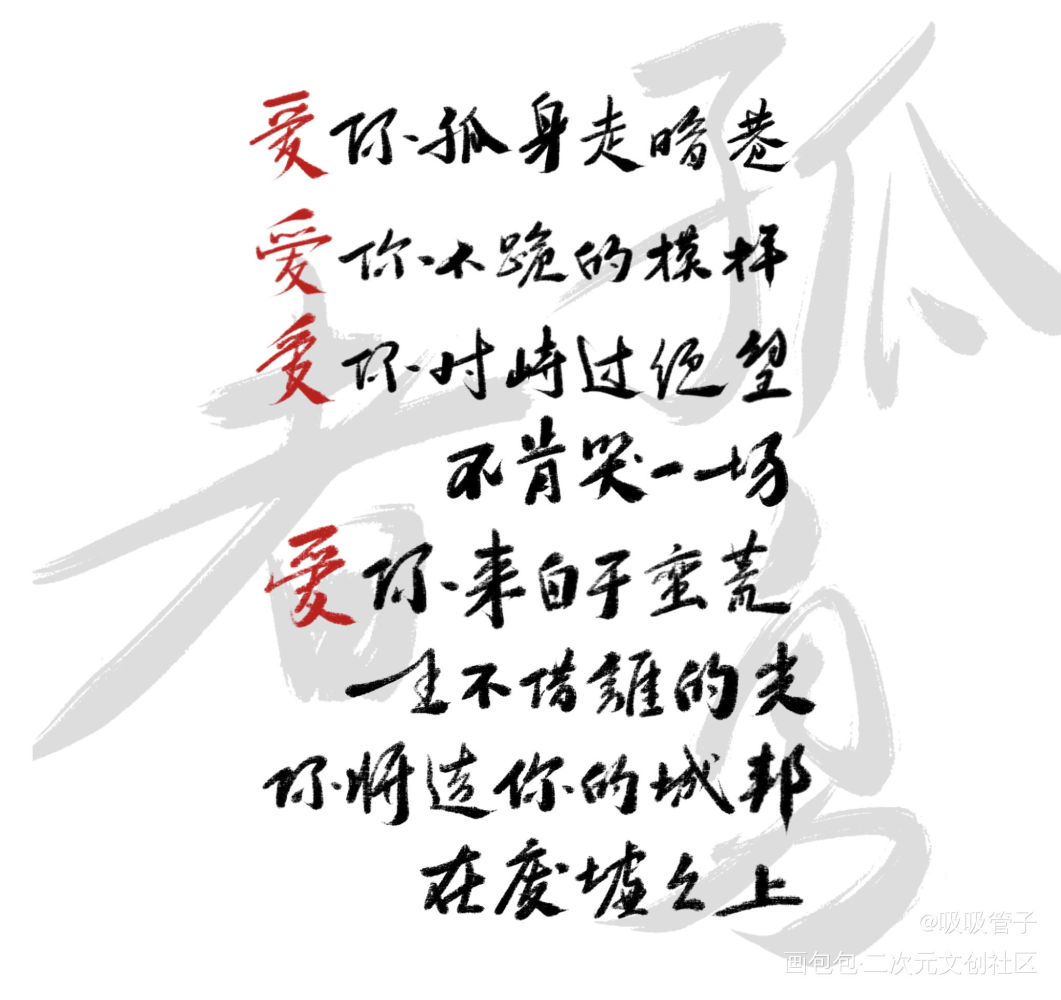 爱你孤身走暗巷
爱你不跪的模样
爱你对峙过绝望
不肯哭一场
爱你来自于蛮荒
一生不借谁的光
你将造你的城邦
在废墟之上
孤勇者
@吸吸管子
画包包·二次元文创社区